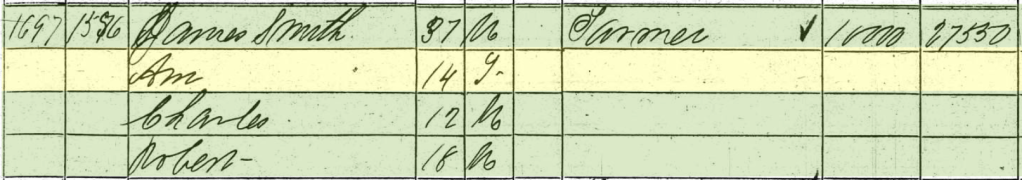 1697 1536 James Smith 37 M Farmer ✓ 10000 27550
Ann 14 F
Charles 12 M
Robert 18 M